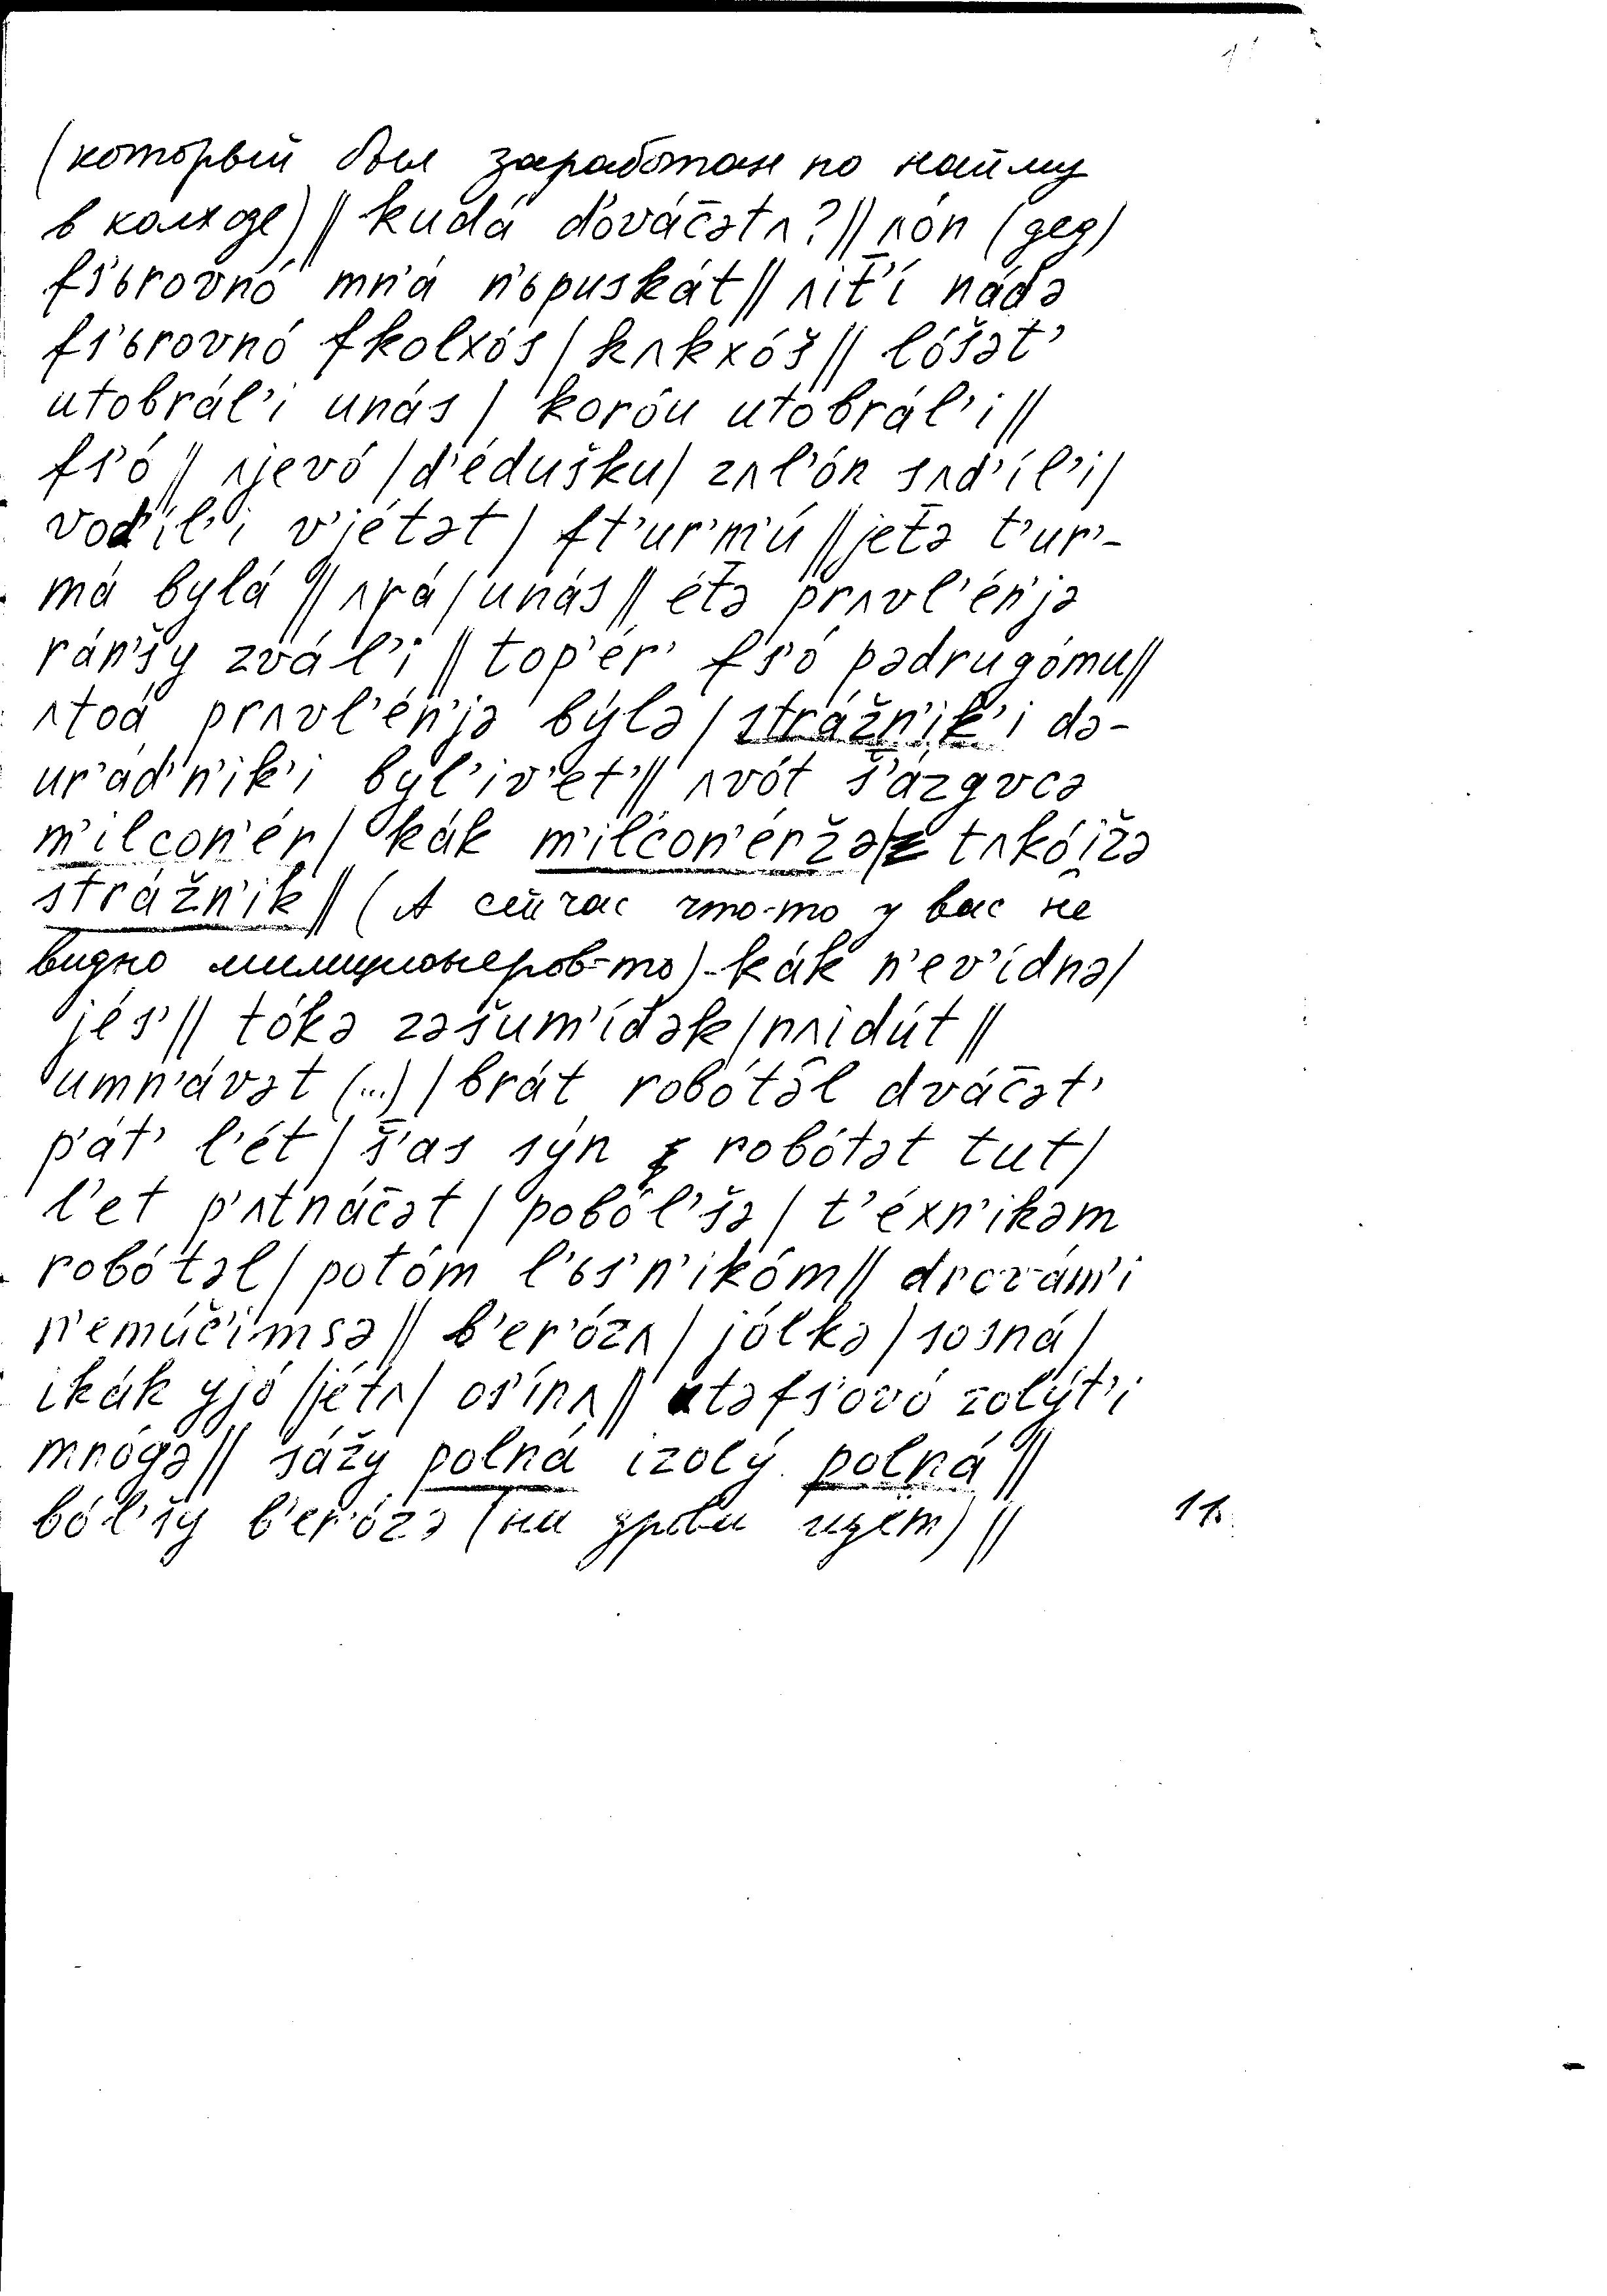 (который был заработан по найму
в колхозе) // kudá d'ováčətʌ? // ʌón (дед)
fs'ьrovnó mn'á n'ьpuskát // ʌit̄'í nádə
fs'ьrovnó fkolxós / kʌkxóš // lóšət'
utobrál'i unás / koróu utobrál'i //
fs'ó // ʌjevó / d'édušku / zʌl'ón sʌd'íl'i /
vod'íl'i v'jétət / ft'ur'm'ú // jetə t'ur'-
má bylá // ʌrá / unás // étə prʌvl'én'jə
rán'šy zvál'i // top'ér' fs'ó pədrugómu //
ʌtoá prʌvl'én'jə býlə / strážn'ik'i də-
ur'ád'n'ik'i byl'iv'et' // ʌvót š'ázgvcə
m'ilcon'ér / kák m'ilcon'éržə / tʌkójžə
strážn'ik // (А сейчас что-то у вас не
видно милиционеров-то) - kák n'ev'ídnə /
jés' // tókə zəšum'íđək / pʌidút //
umn'ávət (...) / brát robótəl dváčət'
p'át' l'ét / š'as sýn robótət tut /
l'et p'ʌtnáčət / poból'šə / t'éxn'ikəm
robótəl / potóm l'ьs'n'ikóm // drovám'i
n'emúč'imsə // b'er'ózʌ / jólkə / sosná /
ikák yjó / jétʌ / os'ínʌ // utəfs'ovó zolýt'i
mnógə // sážy polná izolý polná //
ból'šy b'er'ózə (на дрова идёт) //